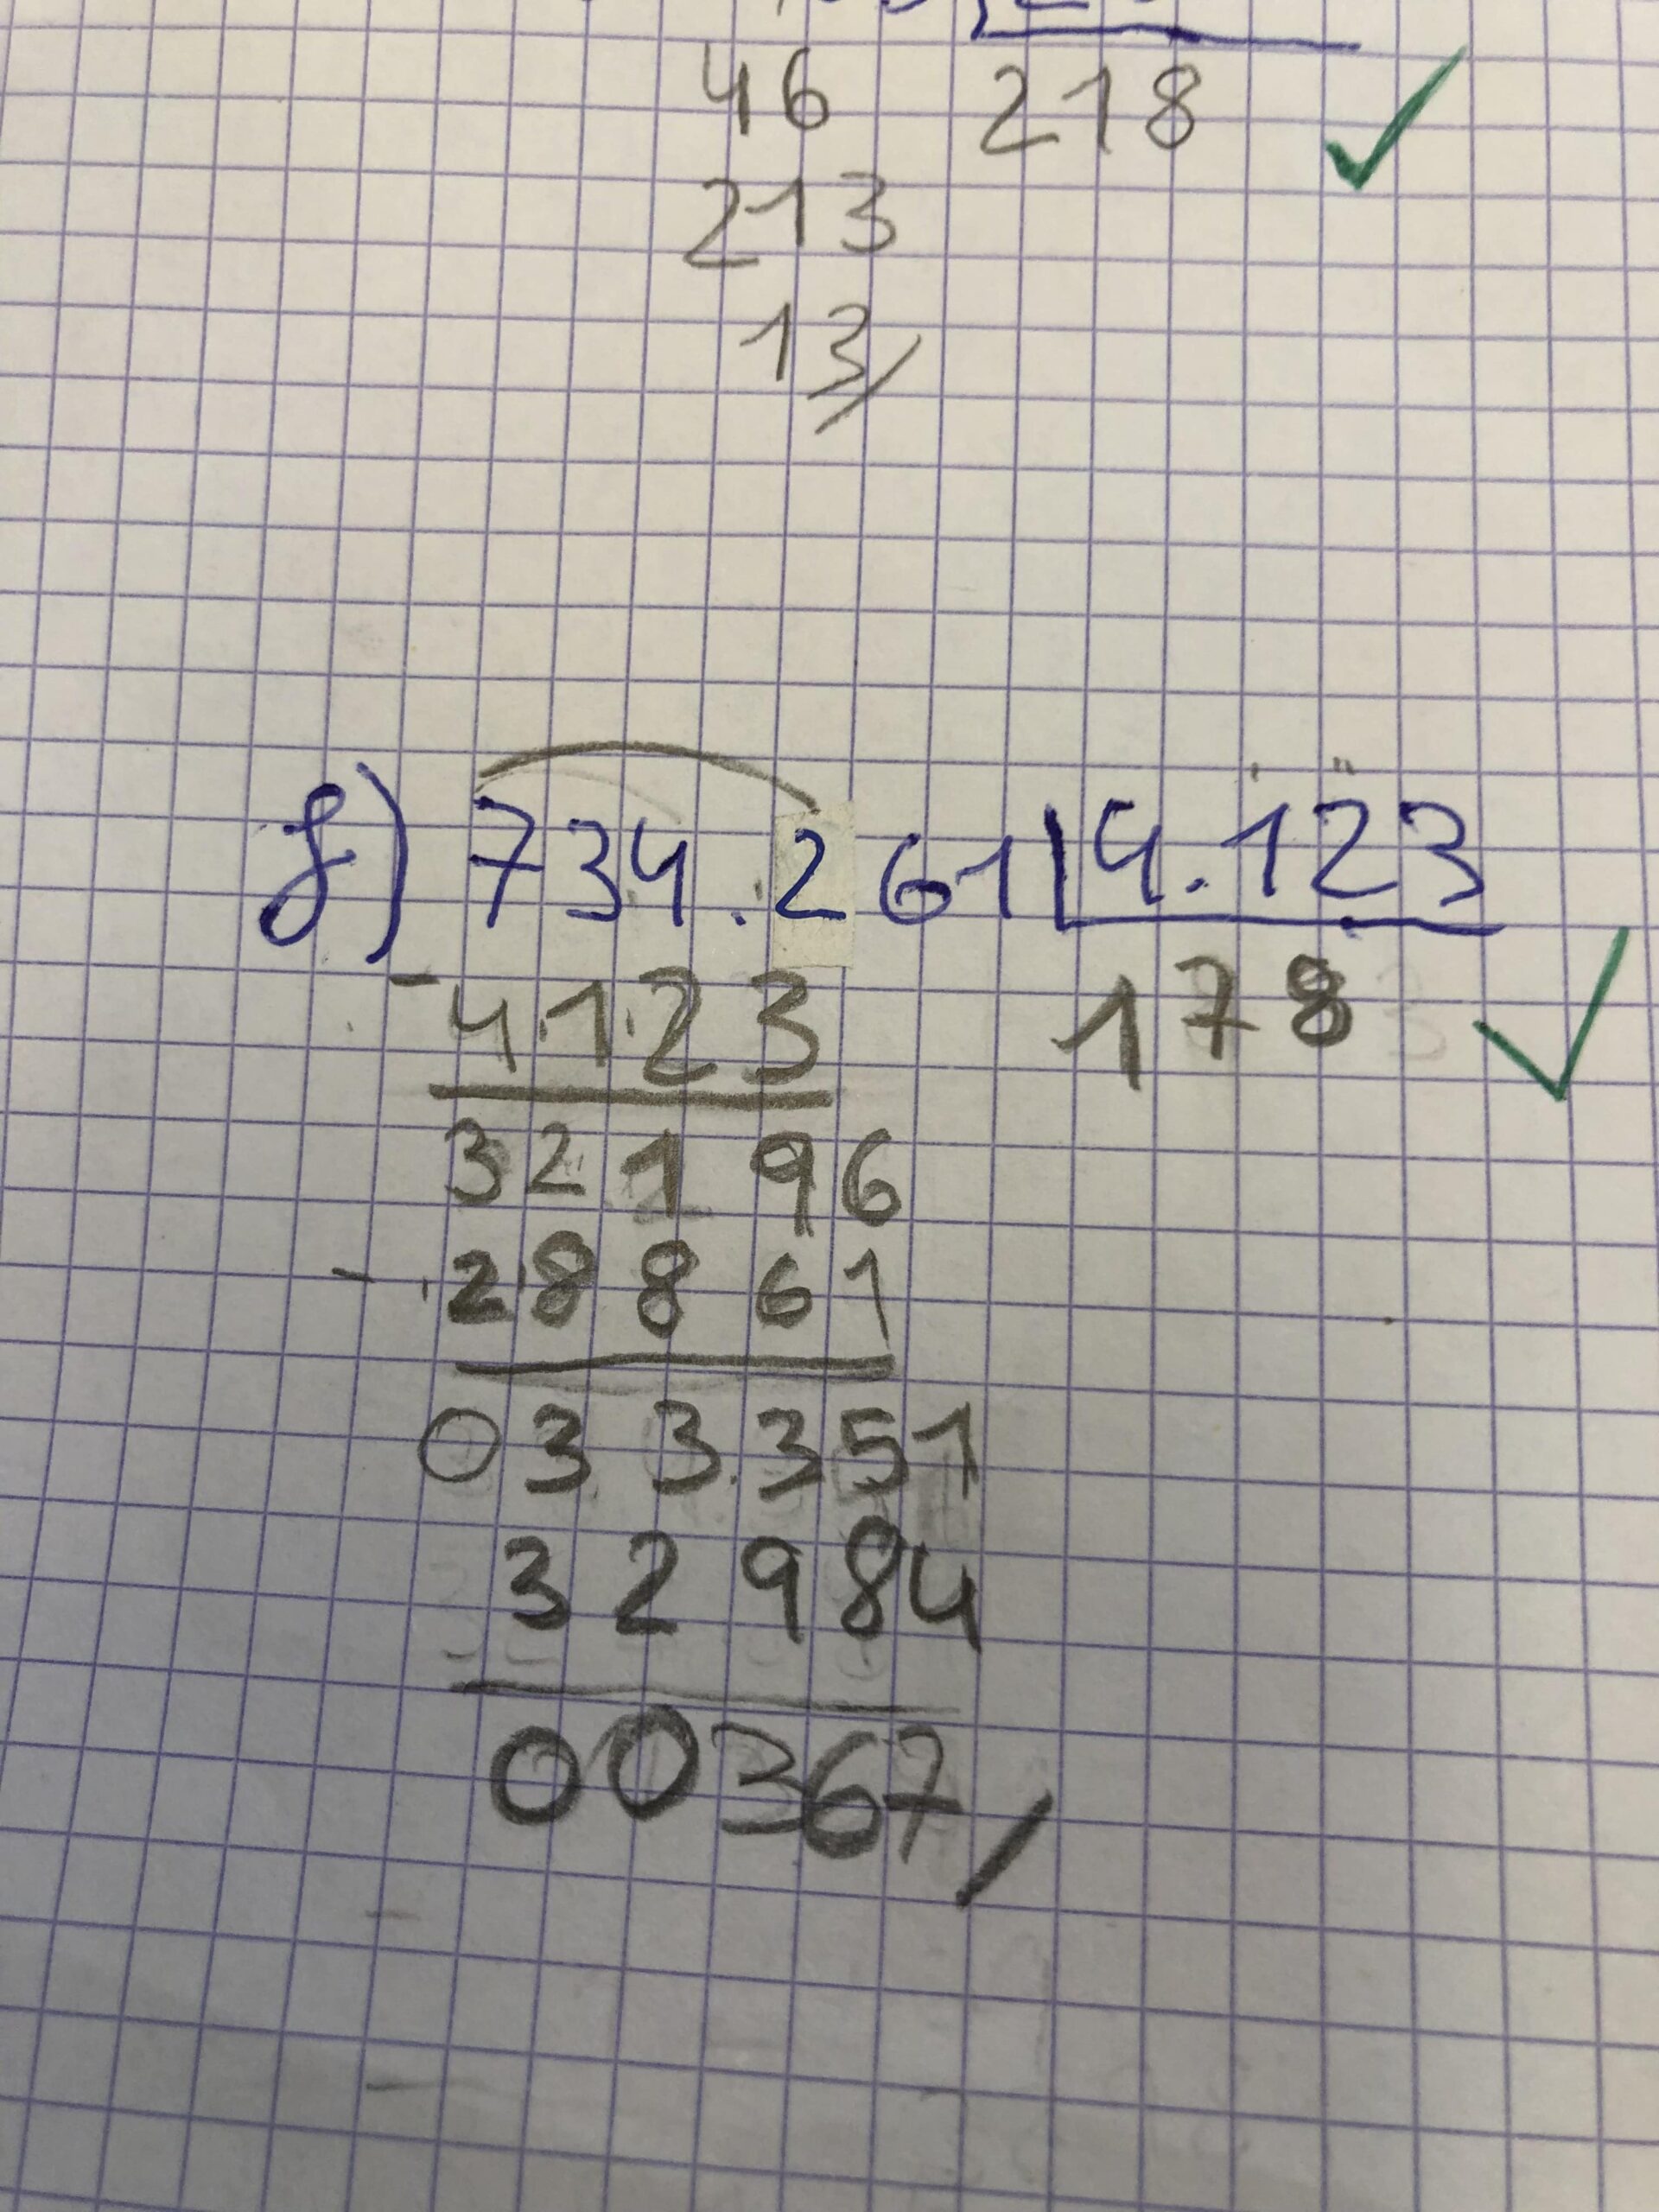 46 218
213
13/
f) 734.261 4.123
-4123 178
32196
-28861
033.351
32984
00367/